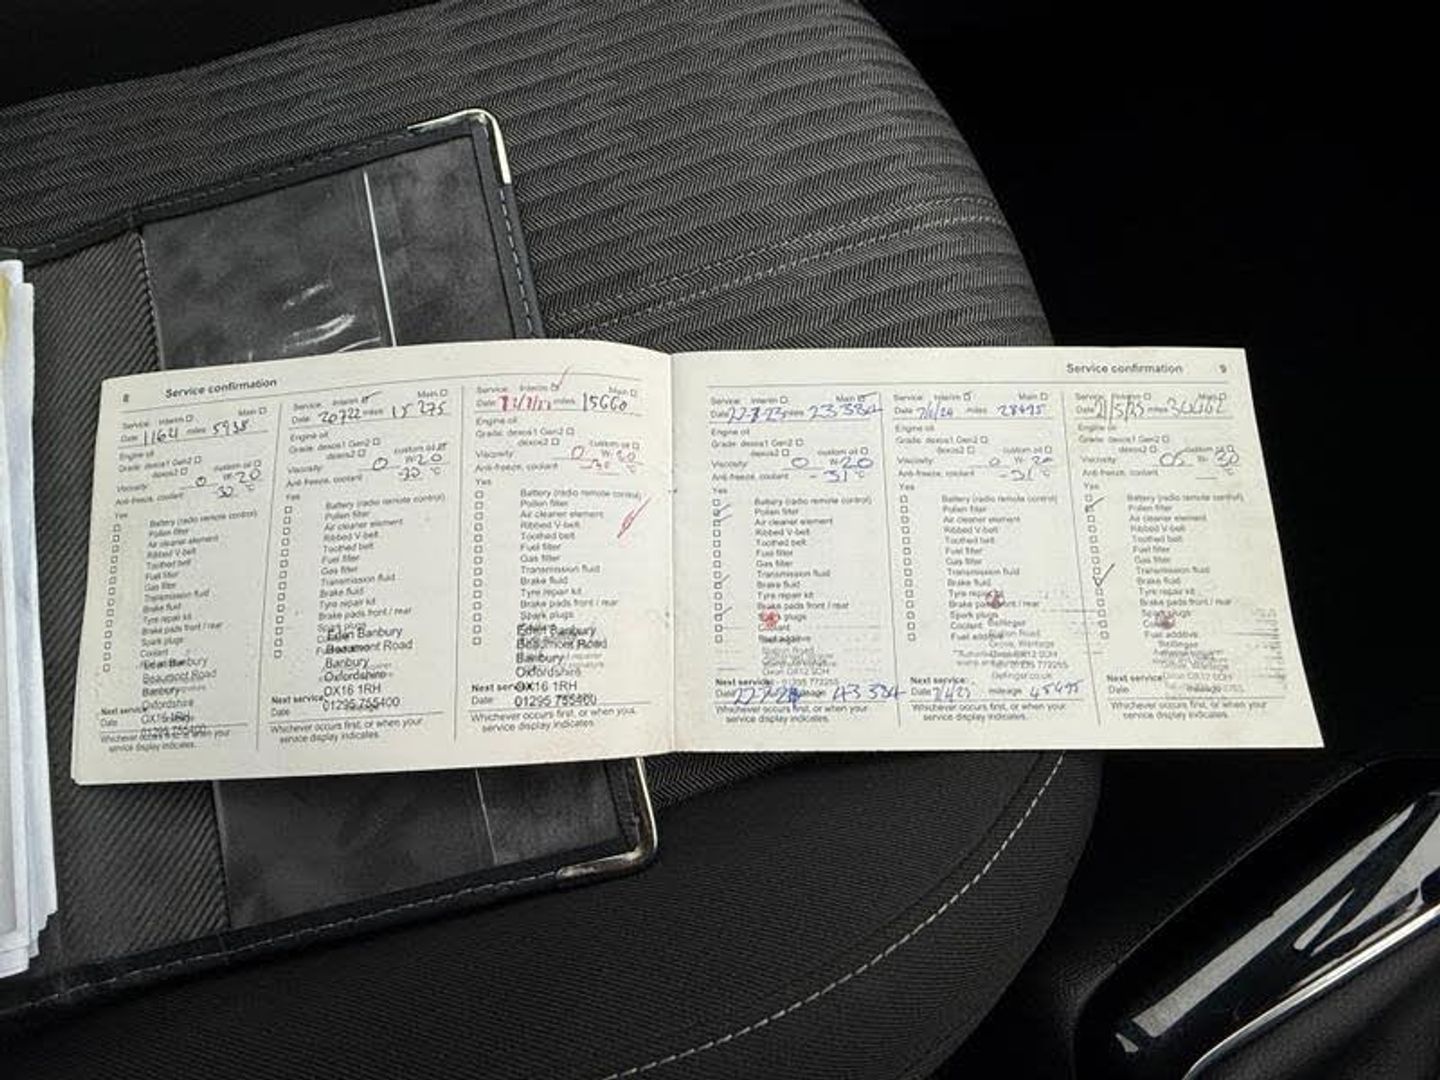 8 Service confirmation
Service: Interim Main
Date 11641 miles 5938
Engine oil
Grade: dexos1 Gen2
dexos2 custom oil
Viscosity 0 W- 20
Anti-freeze, coolant -30 °C
Yes
Battery (radio remote control)
Pollen filter
Air cleaner element
Ribbed V-belt
Toothed belt
Fuel filter
Gas filter
Transmission fluid
Brake fluid
Tyre repair kit
Brake pads front / rear
Spark plugs
Coolant
Eden Banbury
Beaumont Road
Banbury
Oxfordshire
OX16 1RH
01295 755400
Next service:
Date
Whichever occurs first, or when your
service display indicates.
Service: Interim Main
Date 20722 miles 15275
Engine oil
Grade: dexos1 Gen2
dexos2 custom oil
Viscosity 0 W- 20
Anti-freeze, coolant -30 °C
Yes
Battery (radio remote control)
Pollen filter
Air cleaner element
Ribbed V-belt
Toothed belt
Fuel filter
Gas filter
Transmission fluid
Brake fluid
Tyre repair kit
Brake pads front / rear
Spark plugs
Eden Banbury
Beaumont Road
Banbury
Oxfordshire
OX16 1RH
01295 755400
Next service:
Date
Whichever occurs first, or when your
service display indicates.
Service: Interim Main
Date miles 15660
Engine oil
Grade: dexos1 Gen2
dexos2 custom oil
Viscosity 0 W-
Anti-freeze, coolant -30 °C
Yes
Battery (radio remote control)
Pollen filter
Air cleaner element
Ribbed V-belt
Toothed belt
Fuel filter
Gas filter
Transmission fluid
Brake fluid
Tyre repair kit
Brake pads front / rear
Spark plugs
Eden Banbury
Beaumont Road
Banbury
Oxfordshire
OX16 1RH
01295 755400
Next service:
Date
Whichever occurs first, or when your
service display indicates.
Service confirmation 9
Service: Interim Main
Date 22-8-23 miles 23384
Engine oil
Grade: dexos1 Gen2
dexos2 custom oil
Viscosity 0 W- 20
Anti-freeze, coolant -31 °C
Yes
Battery (radio remote control)
Pollen filter
Air cleaner element
Ribbed V-belt
Toothed belt
Fuel filter
Gas filter
Transmission fluid
Brake fluid
Tyre repair kit
Brake pads front / rear
Spark plugs
Coolant
Fuel additive
Next service:
Date mileage 43384
Whichever occurs first, or when your
service display indicates.
Service: Interim Main
Date miles 28495
Engine oil
Grade: dexos1 Gen2
dexos2 custom oil
Viscosity 0 W- 20
Anti-freeze, coolant -31 °C
Yes
Battery (radio remote control)
Pollen filter
Air cleaner element
Ribbed V-belt
Toothed belt
Fuel filter
Gas filter
Transmission fluid
Brake fluid
Tyre repair kit
Brake pads front / rear
Spark plugs
Coolant
Fuel additive
Next service:
Date mileage 45495
Whichever occurs first, or when your
service display indicates.
Service: Interim Main
Date miles
Engine oil
Grade: dexos1 Gen2
dexos2 custom oil
Viscosity W- 30
Anti-freeze, coolant °C
Yes
Battery (radio remote control)
Pollen filter
Air cleaner element
Ribbed V-belt
Toothed belt
Fuel filter
Gas filter
Transmission fluid
Brake fluid
Tyre repair kit
Brake pads front / rear
Spark plugs
Fuel additive
Next service:
Date mileage
Whichever occurs first, or when your
service display indicates.